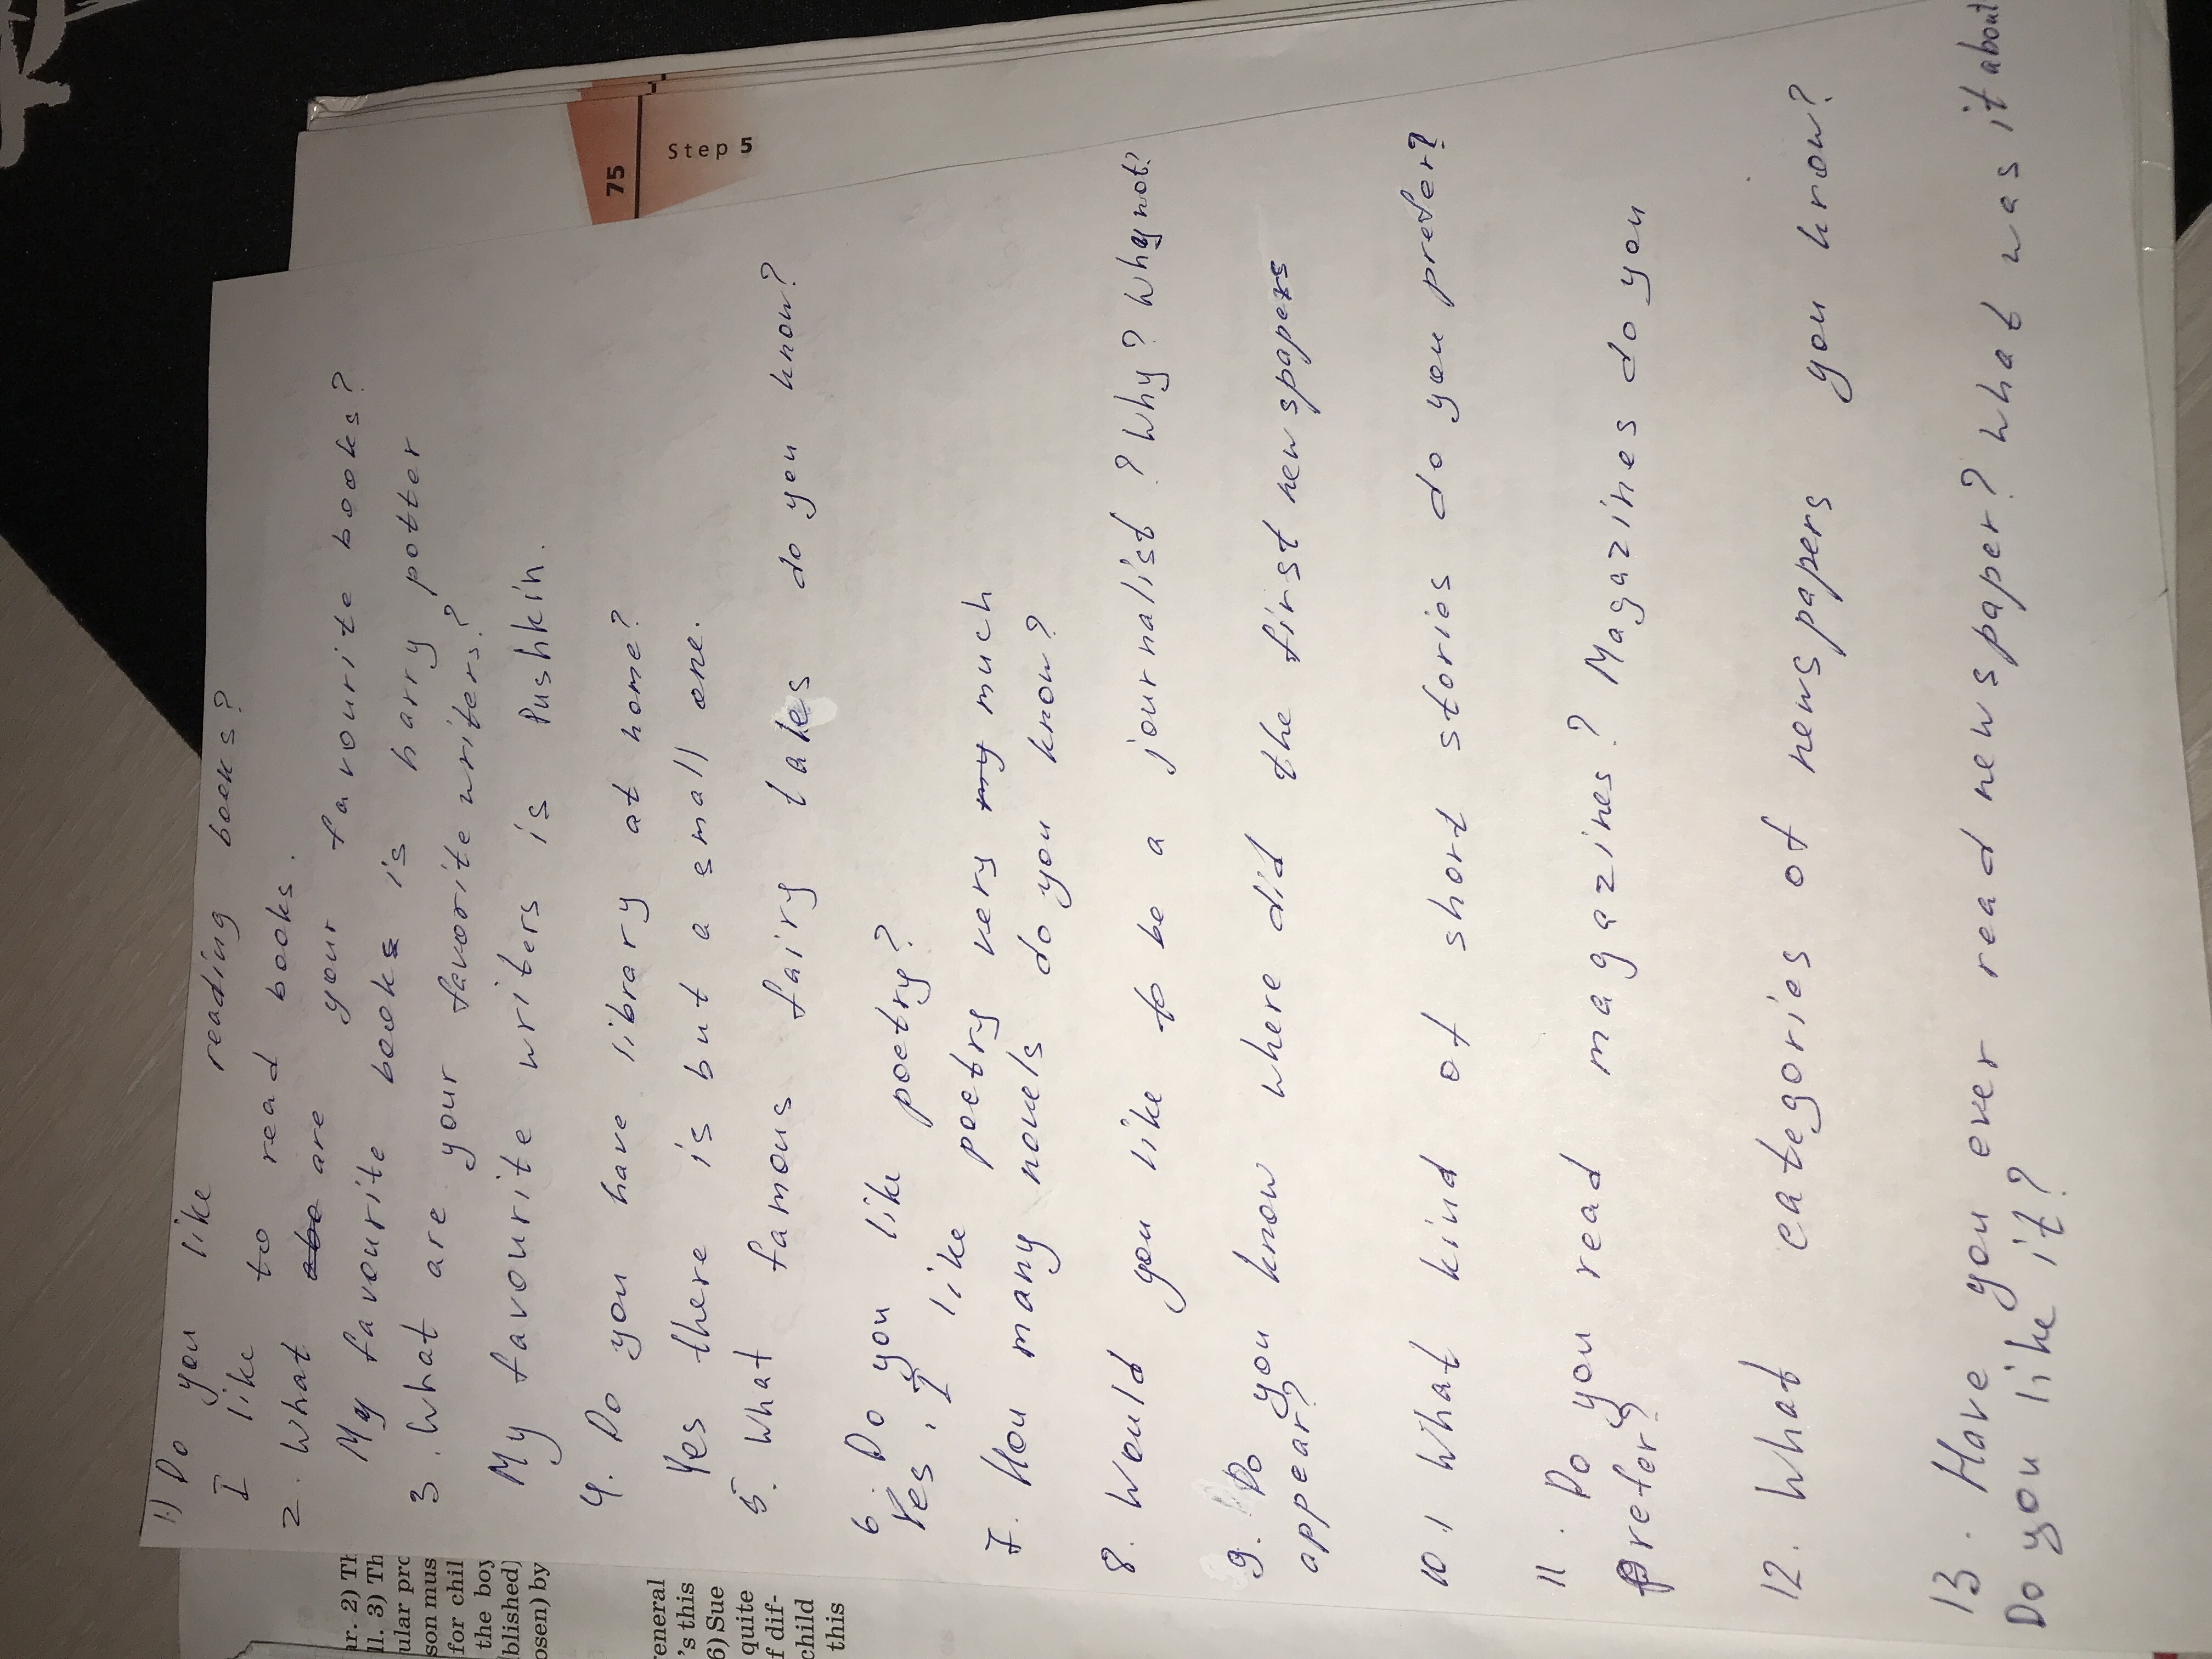 1) Do you like reading books?
I like to read books.
2. What are your favourite books?
My favourite books is harry potter
3. What are your favorite writers?
My favourite writers is Pushkin.
4. Do you have library at home?
Yes there is but a small one.
5. What famous fairy tales do you know?
6. Do you like poetry?
Yes, I like poetry very my much
7. How many novels do you know?
8. Would you like to be a journalist? Why? Why not?
9. Do you know where did the first newspapers
appear?
10. What kind of short stories do you prefer?
11. Do you read magazines? Magazines do you
prefer?
12. What categories of newspapers you know?
13. Have you ever read newspaper? What was it about
Do you like it?
75
Step 5
ar. 2) Th
ll. 3) Th
ular pro
son mus
for chil
the boy
blished)
osen) by
eneral
's this
6) Sue
quite
f dif-
child
this